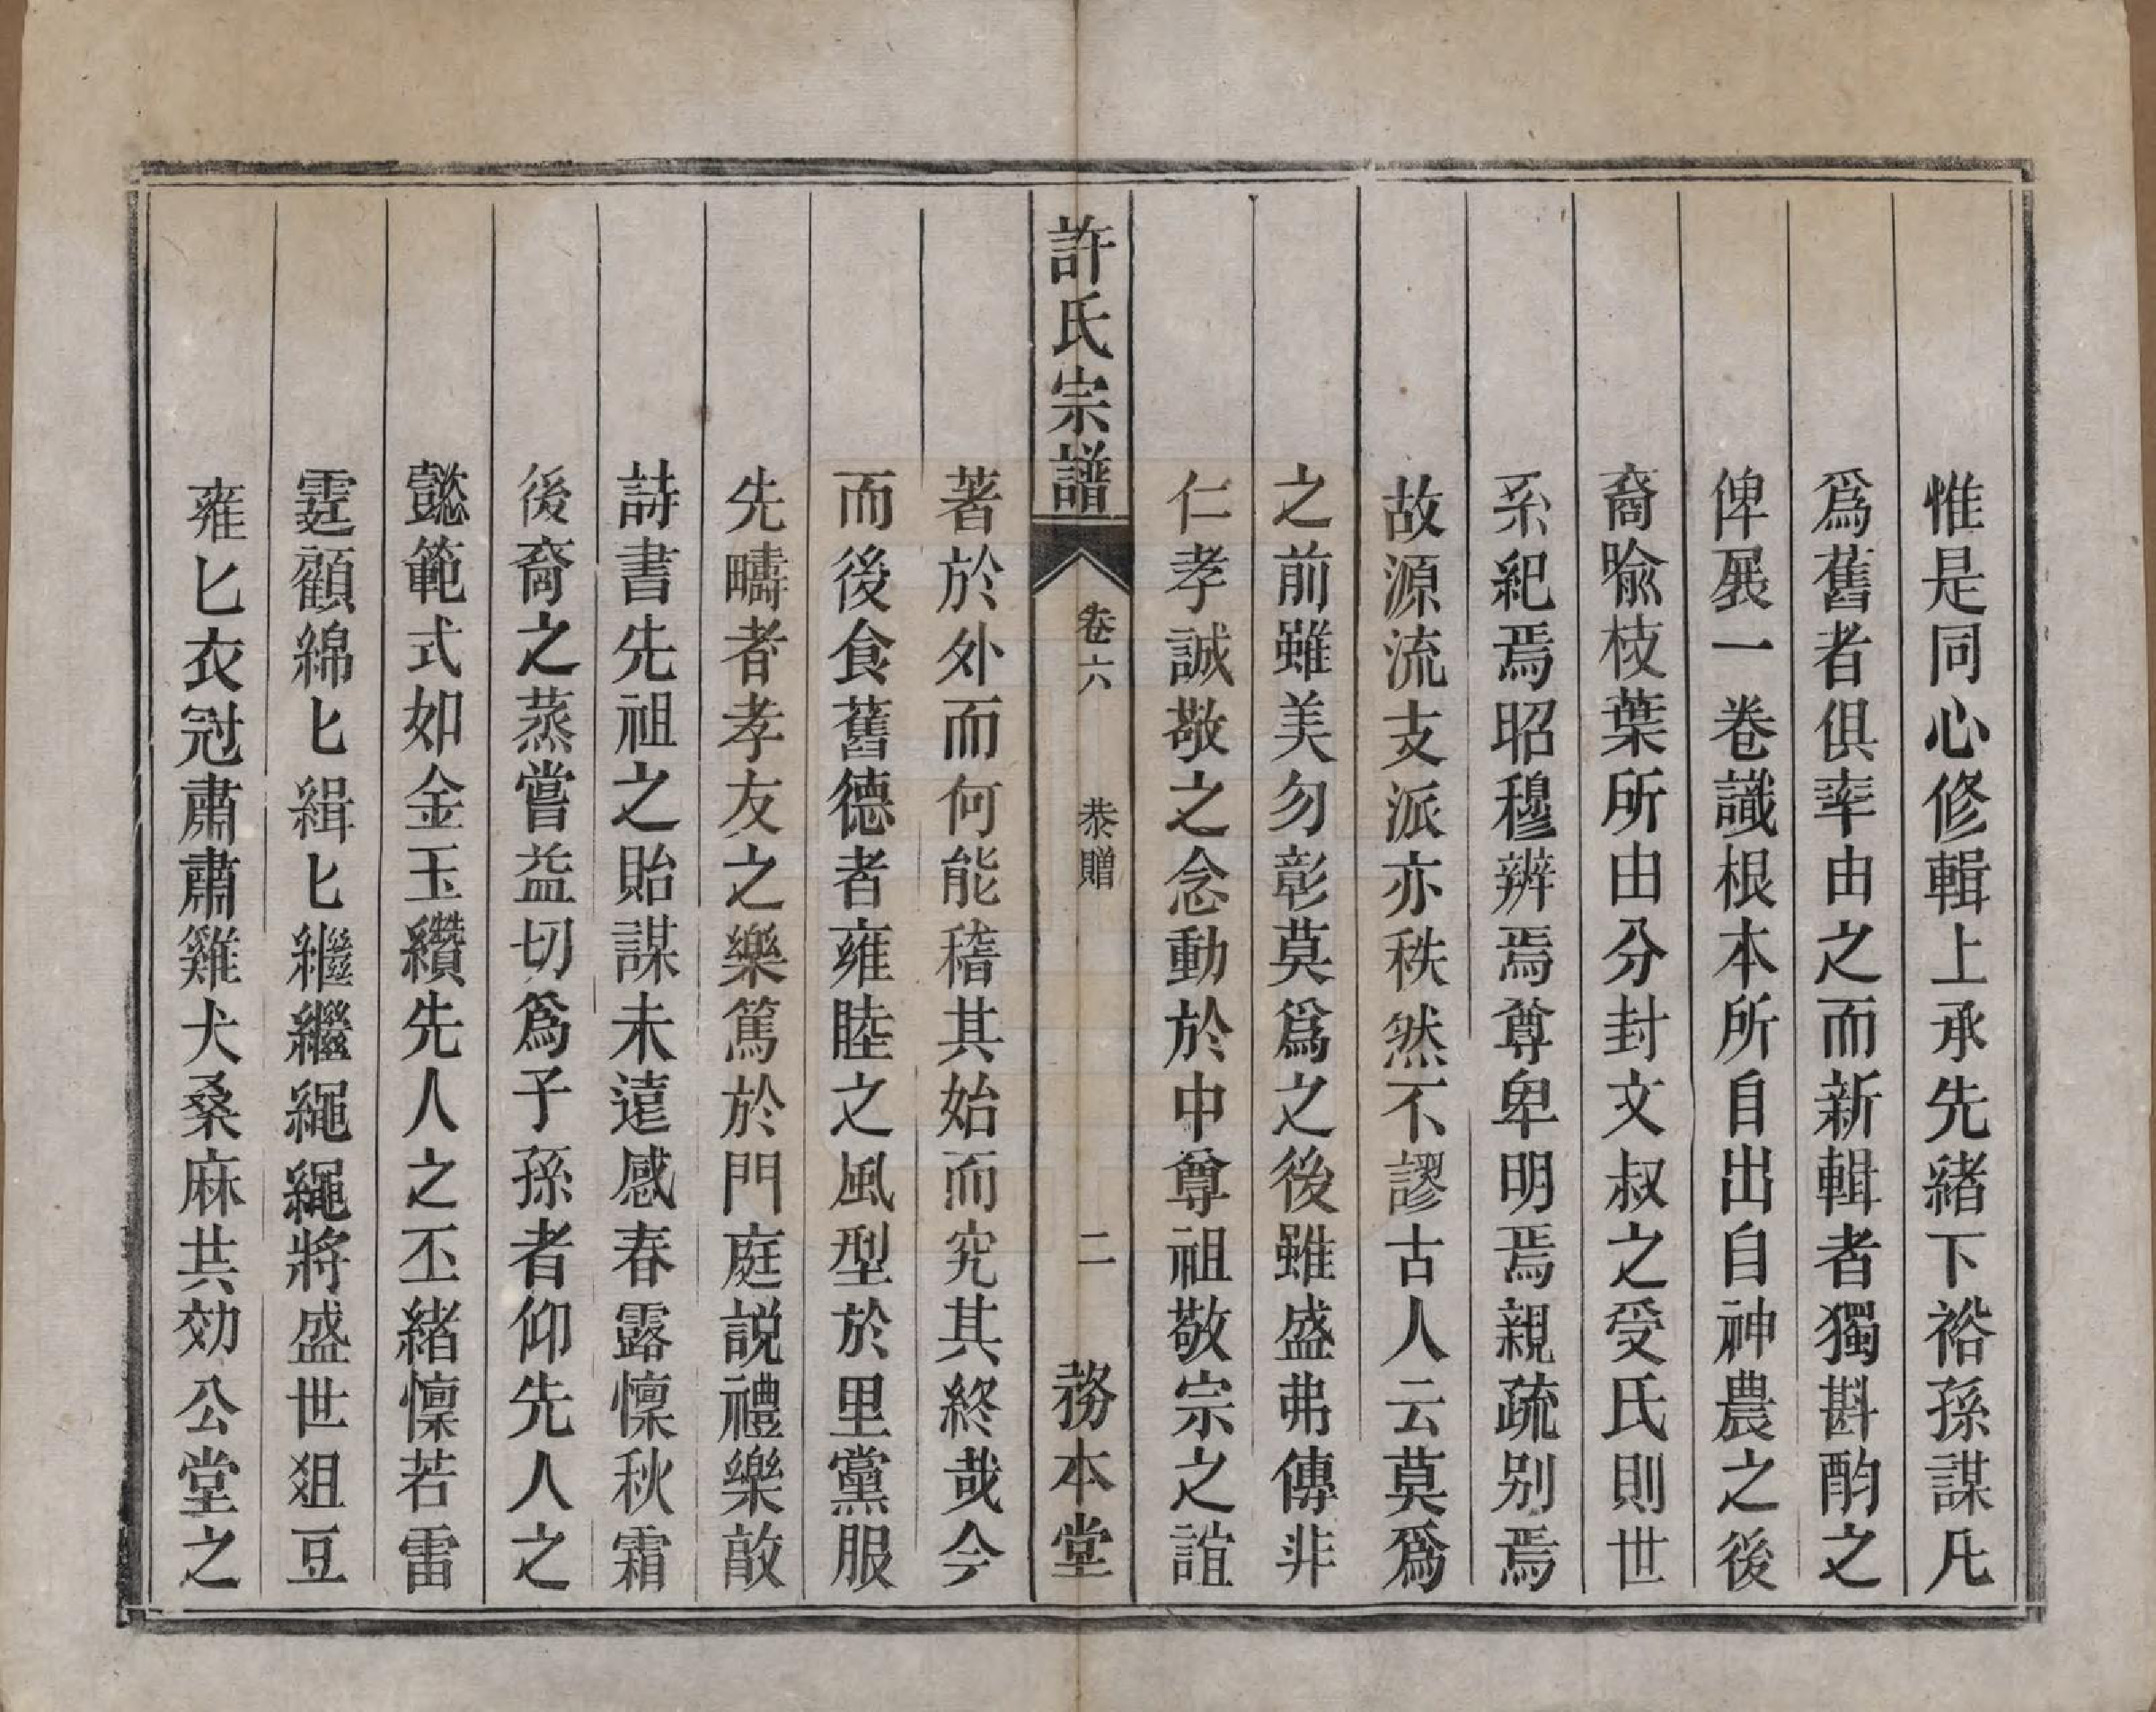 惟是同心修輯上承先緒下裕孫謀凡
爲舊者俱率由之而新輯者獨斟酌之
俾展一卷識根本所自出自神農之後
裔喩枝葉所由分封文叔之受氏則世
系紀焉昭穆辨焉尊卑明焉親疏别焉
故源流支派亦秩然不謬古人云莫爲
之前雖美勿彰莫爲之後雖盛弗傳非
仁孝誠敬之念動於中尊祖敬宗之誼
許氏宗譜 卷六 恭贈 二 務本堂
著於外而何能稽其始而究其終哉今
而後食舊德者雍睦之風型於里黨服
先疇者孝友之樂篤於門庭説禮樂敦
詩書先祖之貽謀未遠感春露懍秋霜
後裔之蒸嘗益切爲子孫者仰先人之
懿範式如金玉纘先人之丕緒懍若雷
霆顧綿匕緝匕繼繼繩繩將盛世俎豆
雍匕衣冠肅肅雞犬桑麻共効公堂之